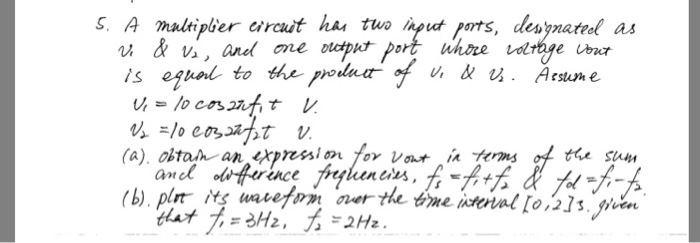 5. A multiplier circuit has two input ports, designated as
v₁ & v₂, and one output port whose voltage vout
is equal to the product of v₁ & v₂. Assume
v₁ = 10 cos 2πf₁t V.
v₂ = 10 cos 2πf₂t V.
(a). obtain an expression for vout in terms of the sum
and difference frequencies, fs = f₁+f₂ & fd = f₁-f₂.
(b). plot its waveform over the time interval [0,2]s. given
that f₁ = 3Hz, f₂ = 2Hz.